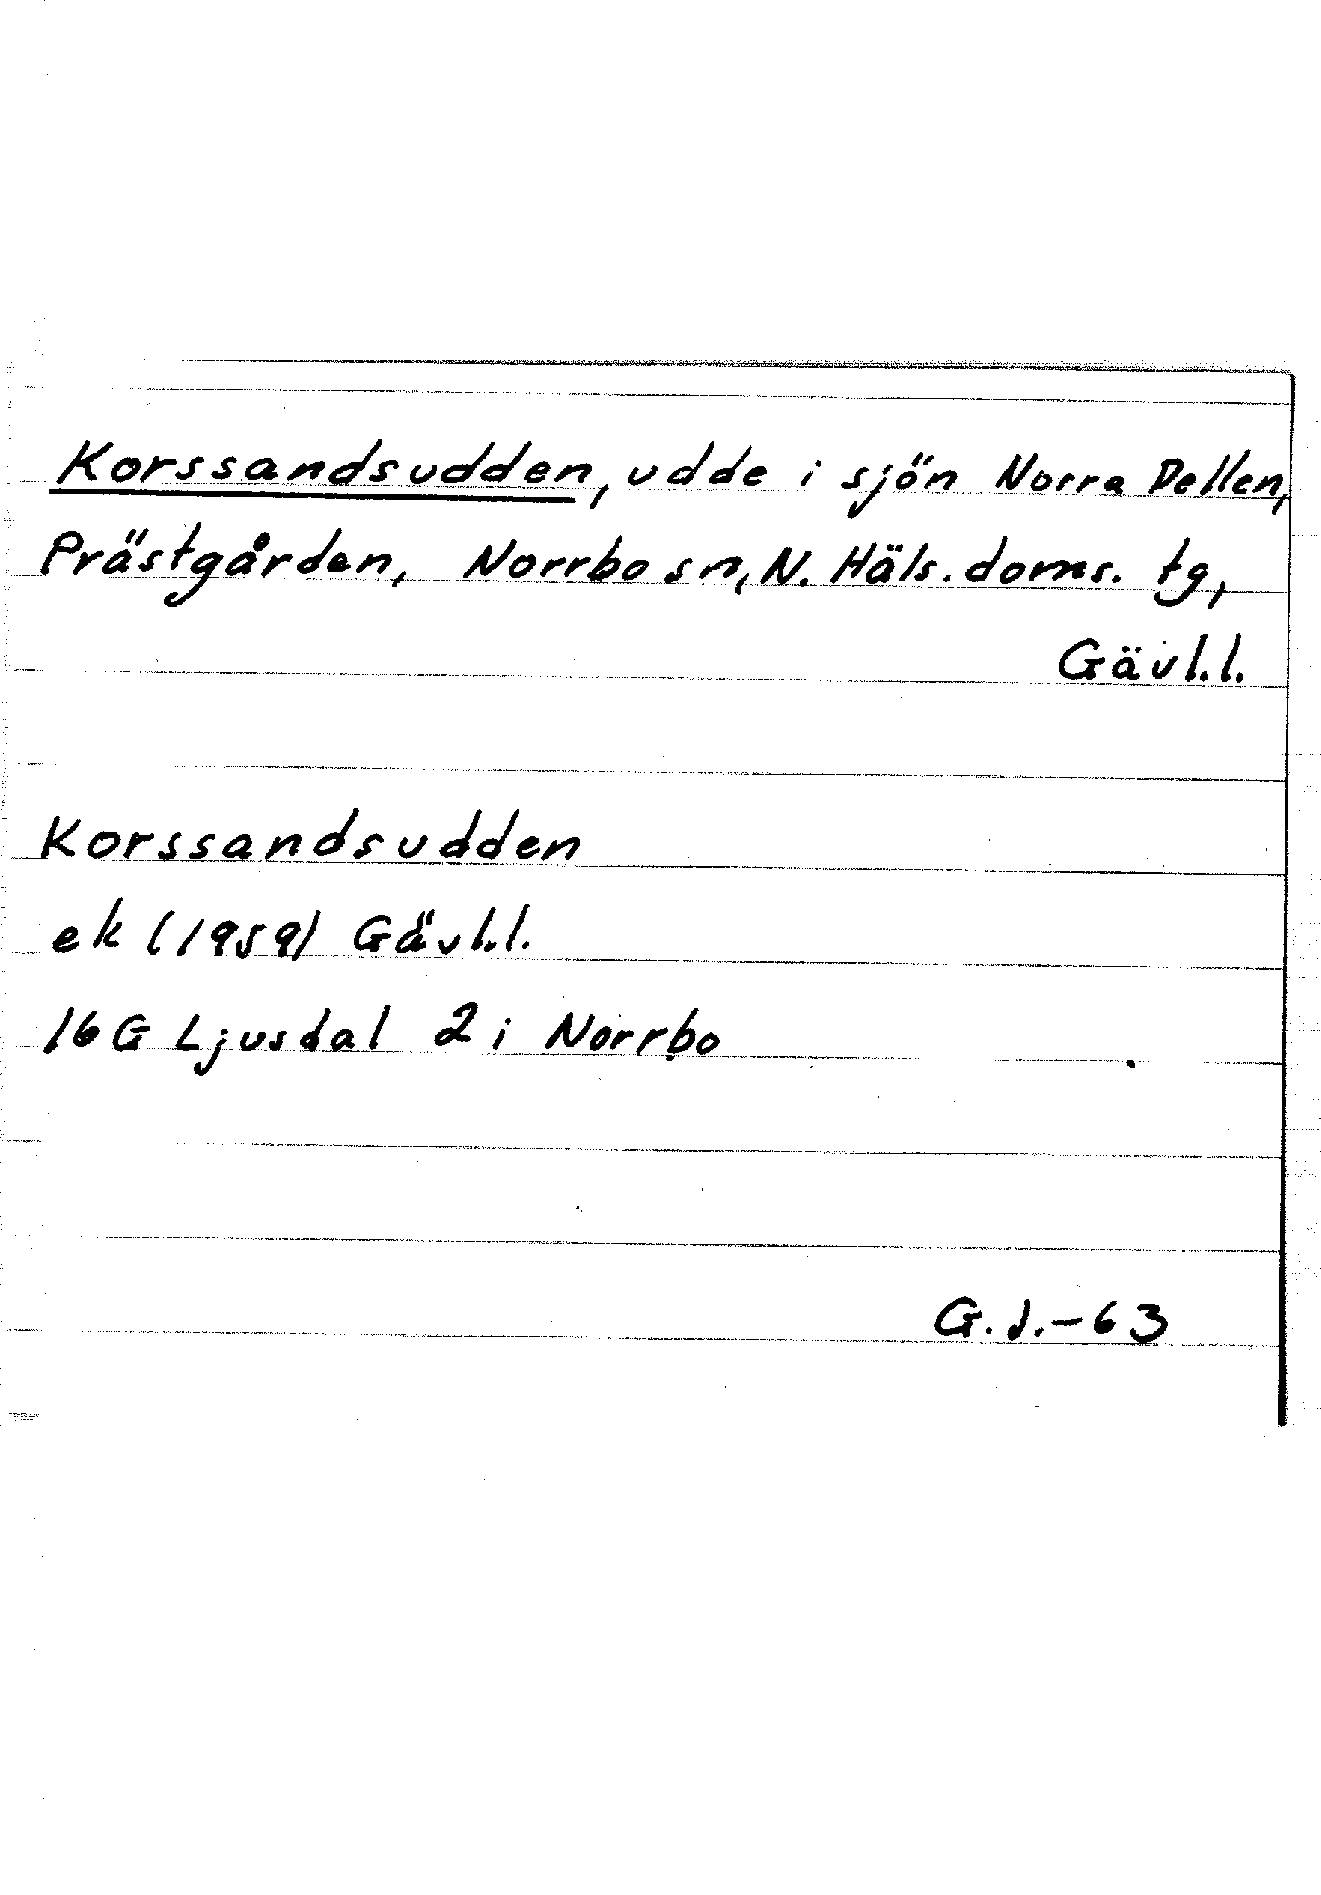 Korssandsudden, udde i sjön Norra Dellen,
Prästgården, Norrbo sn, N. Häls. doms. tg,
Gävl.l.
Korssandsudden
ek (1959) Gävl.l.
16 G Ljusdal 2 i Norrbo
G.J.-63